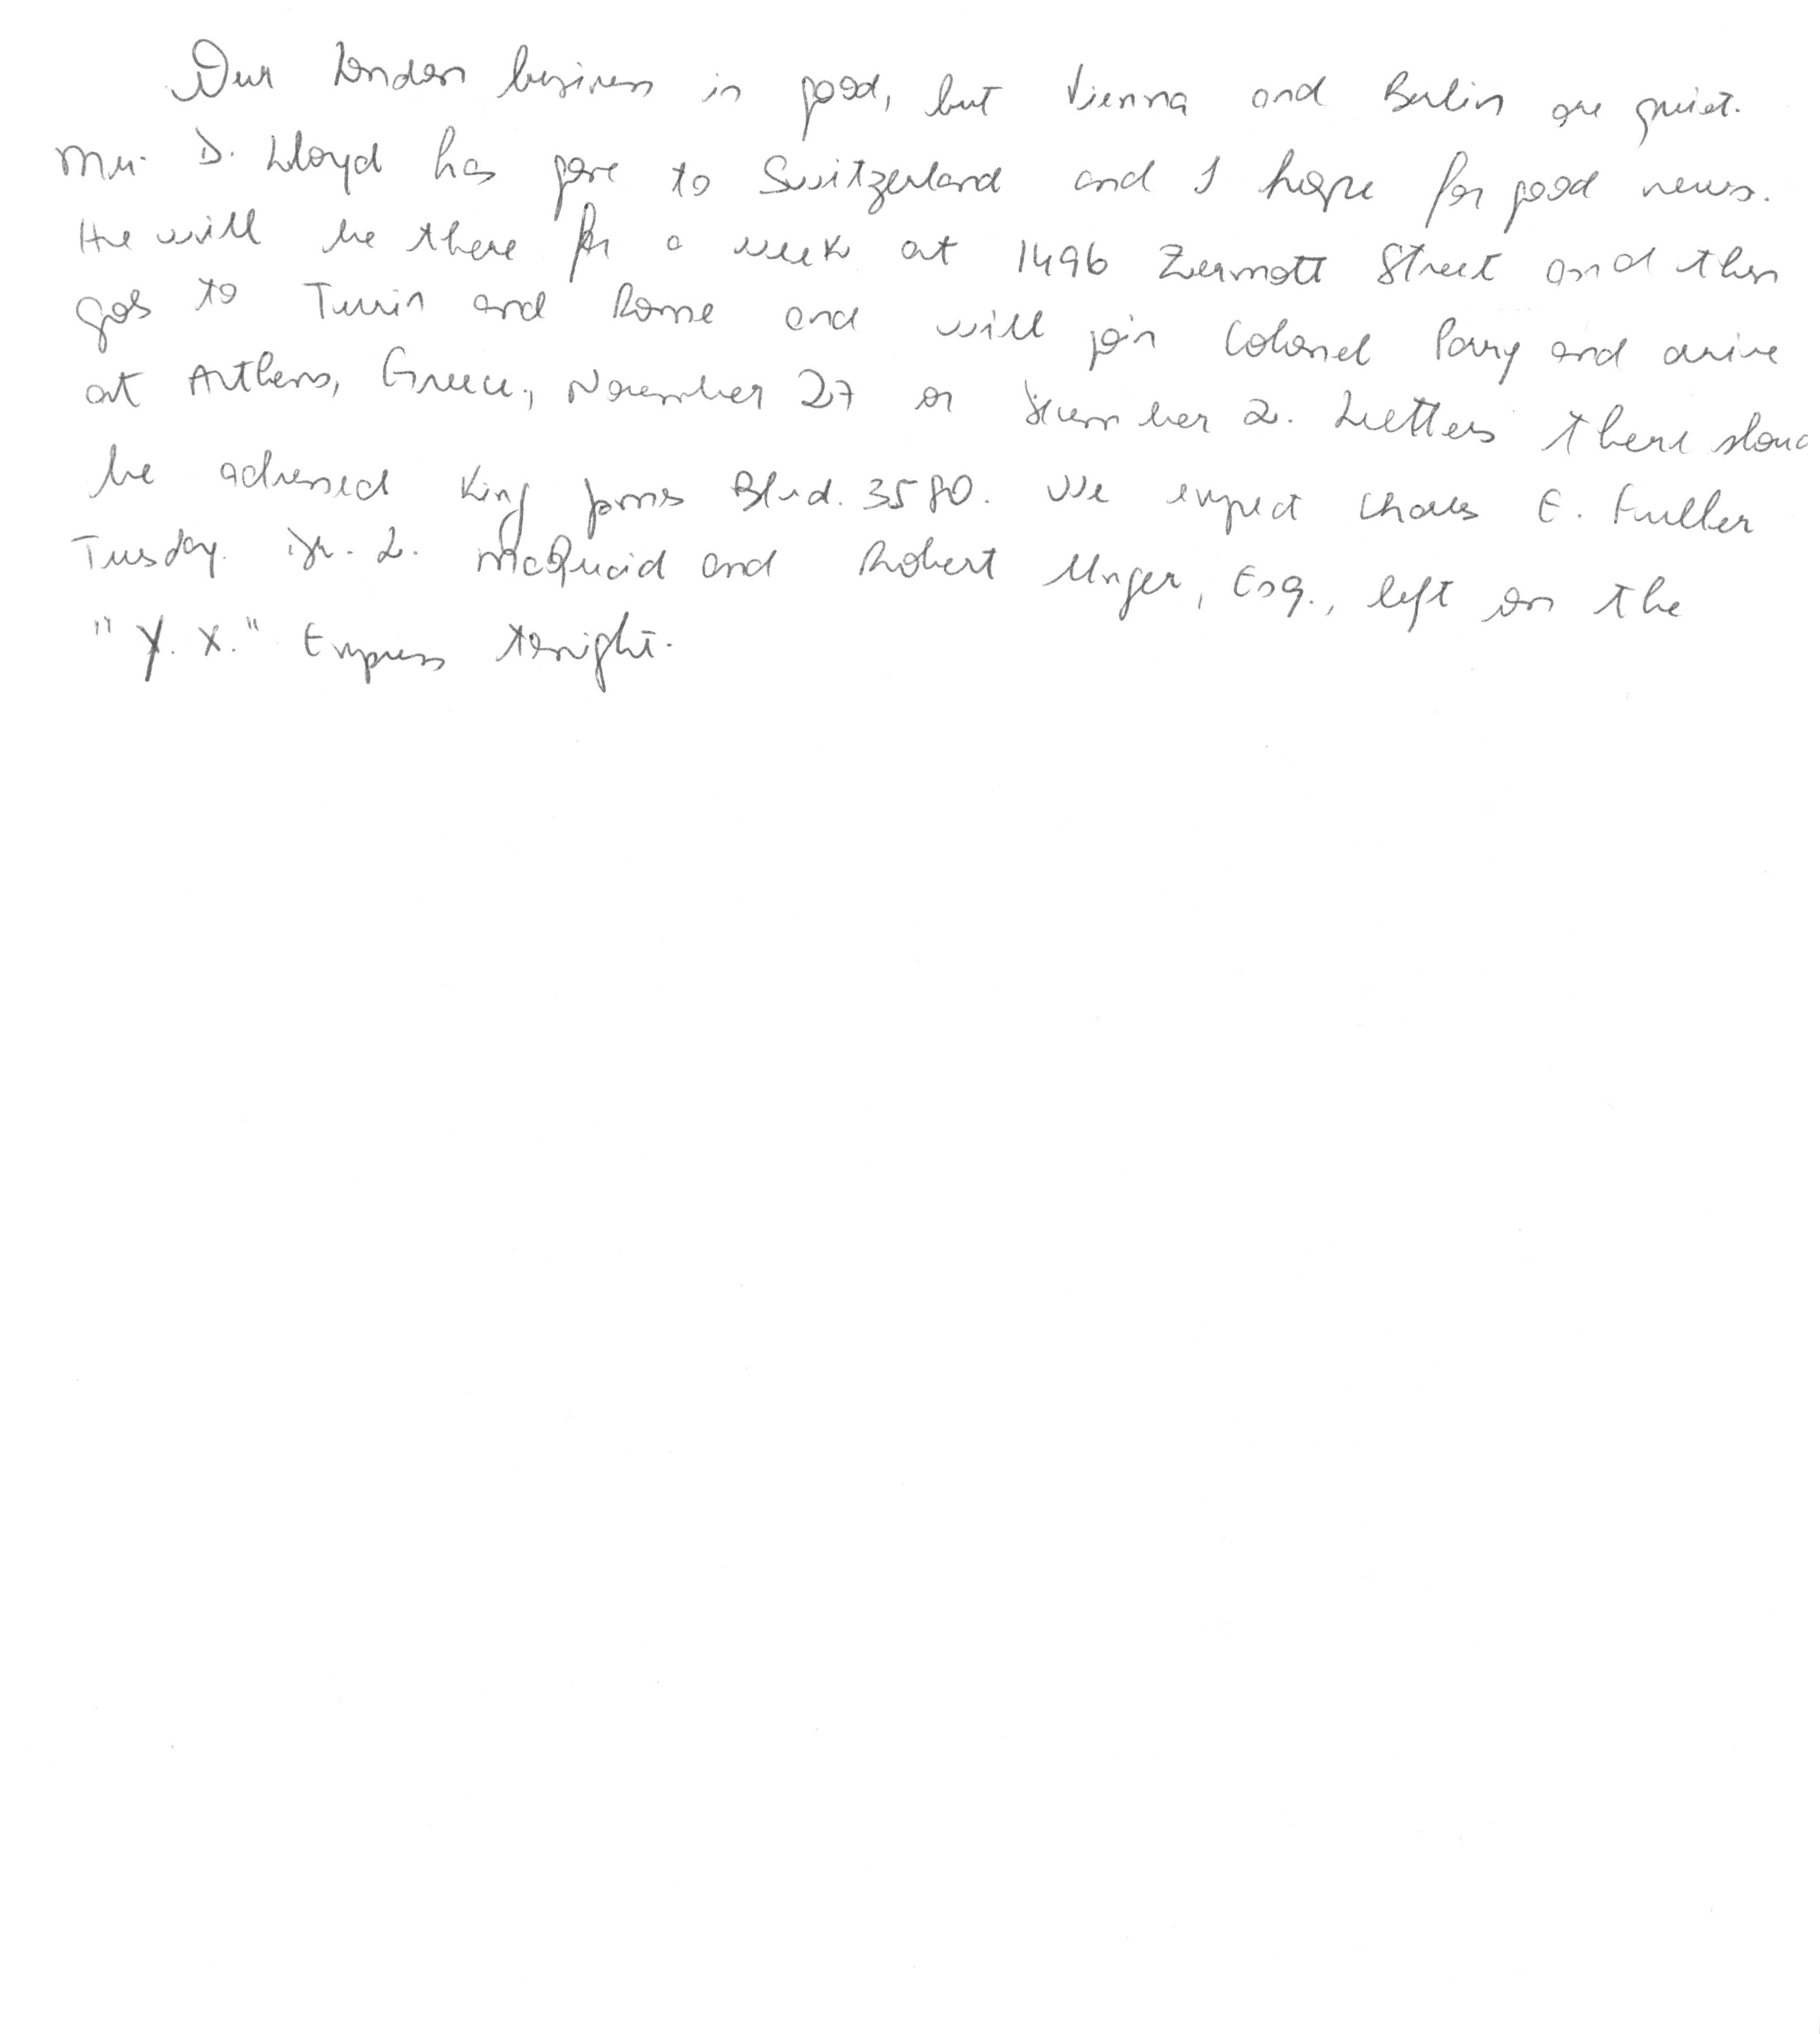 Our London business is good, but Vienna and Berlin are quiet.
Mr. D. Lloyd has gone to Switzerland and I hope for good news.
He will be there for a week at 1496 Zermott Street and then
goes to Turin and Rome and will join Colonel Parry and arive
at Athens, Greece, November 27 or December 2. Letters there shoud
be adressed King James Blvd. 3580. We expect Charles E. Fuller
Tuesday. Dr. L. McQuaid and Robert Unger, Esq., left on the
"Y. X." Express tonight.